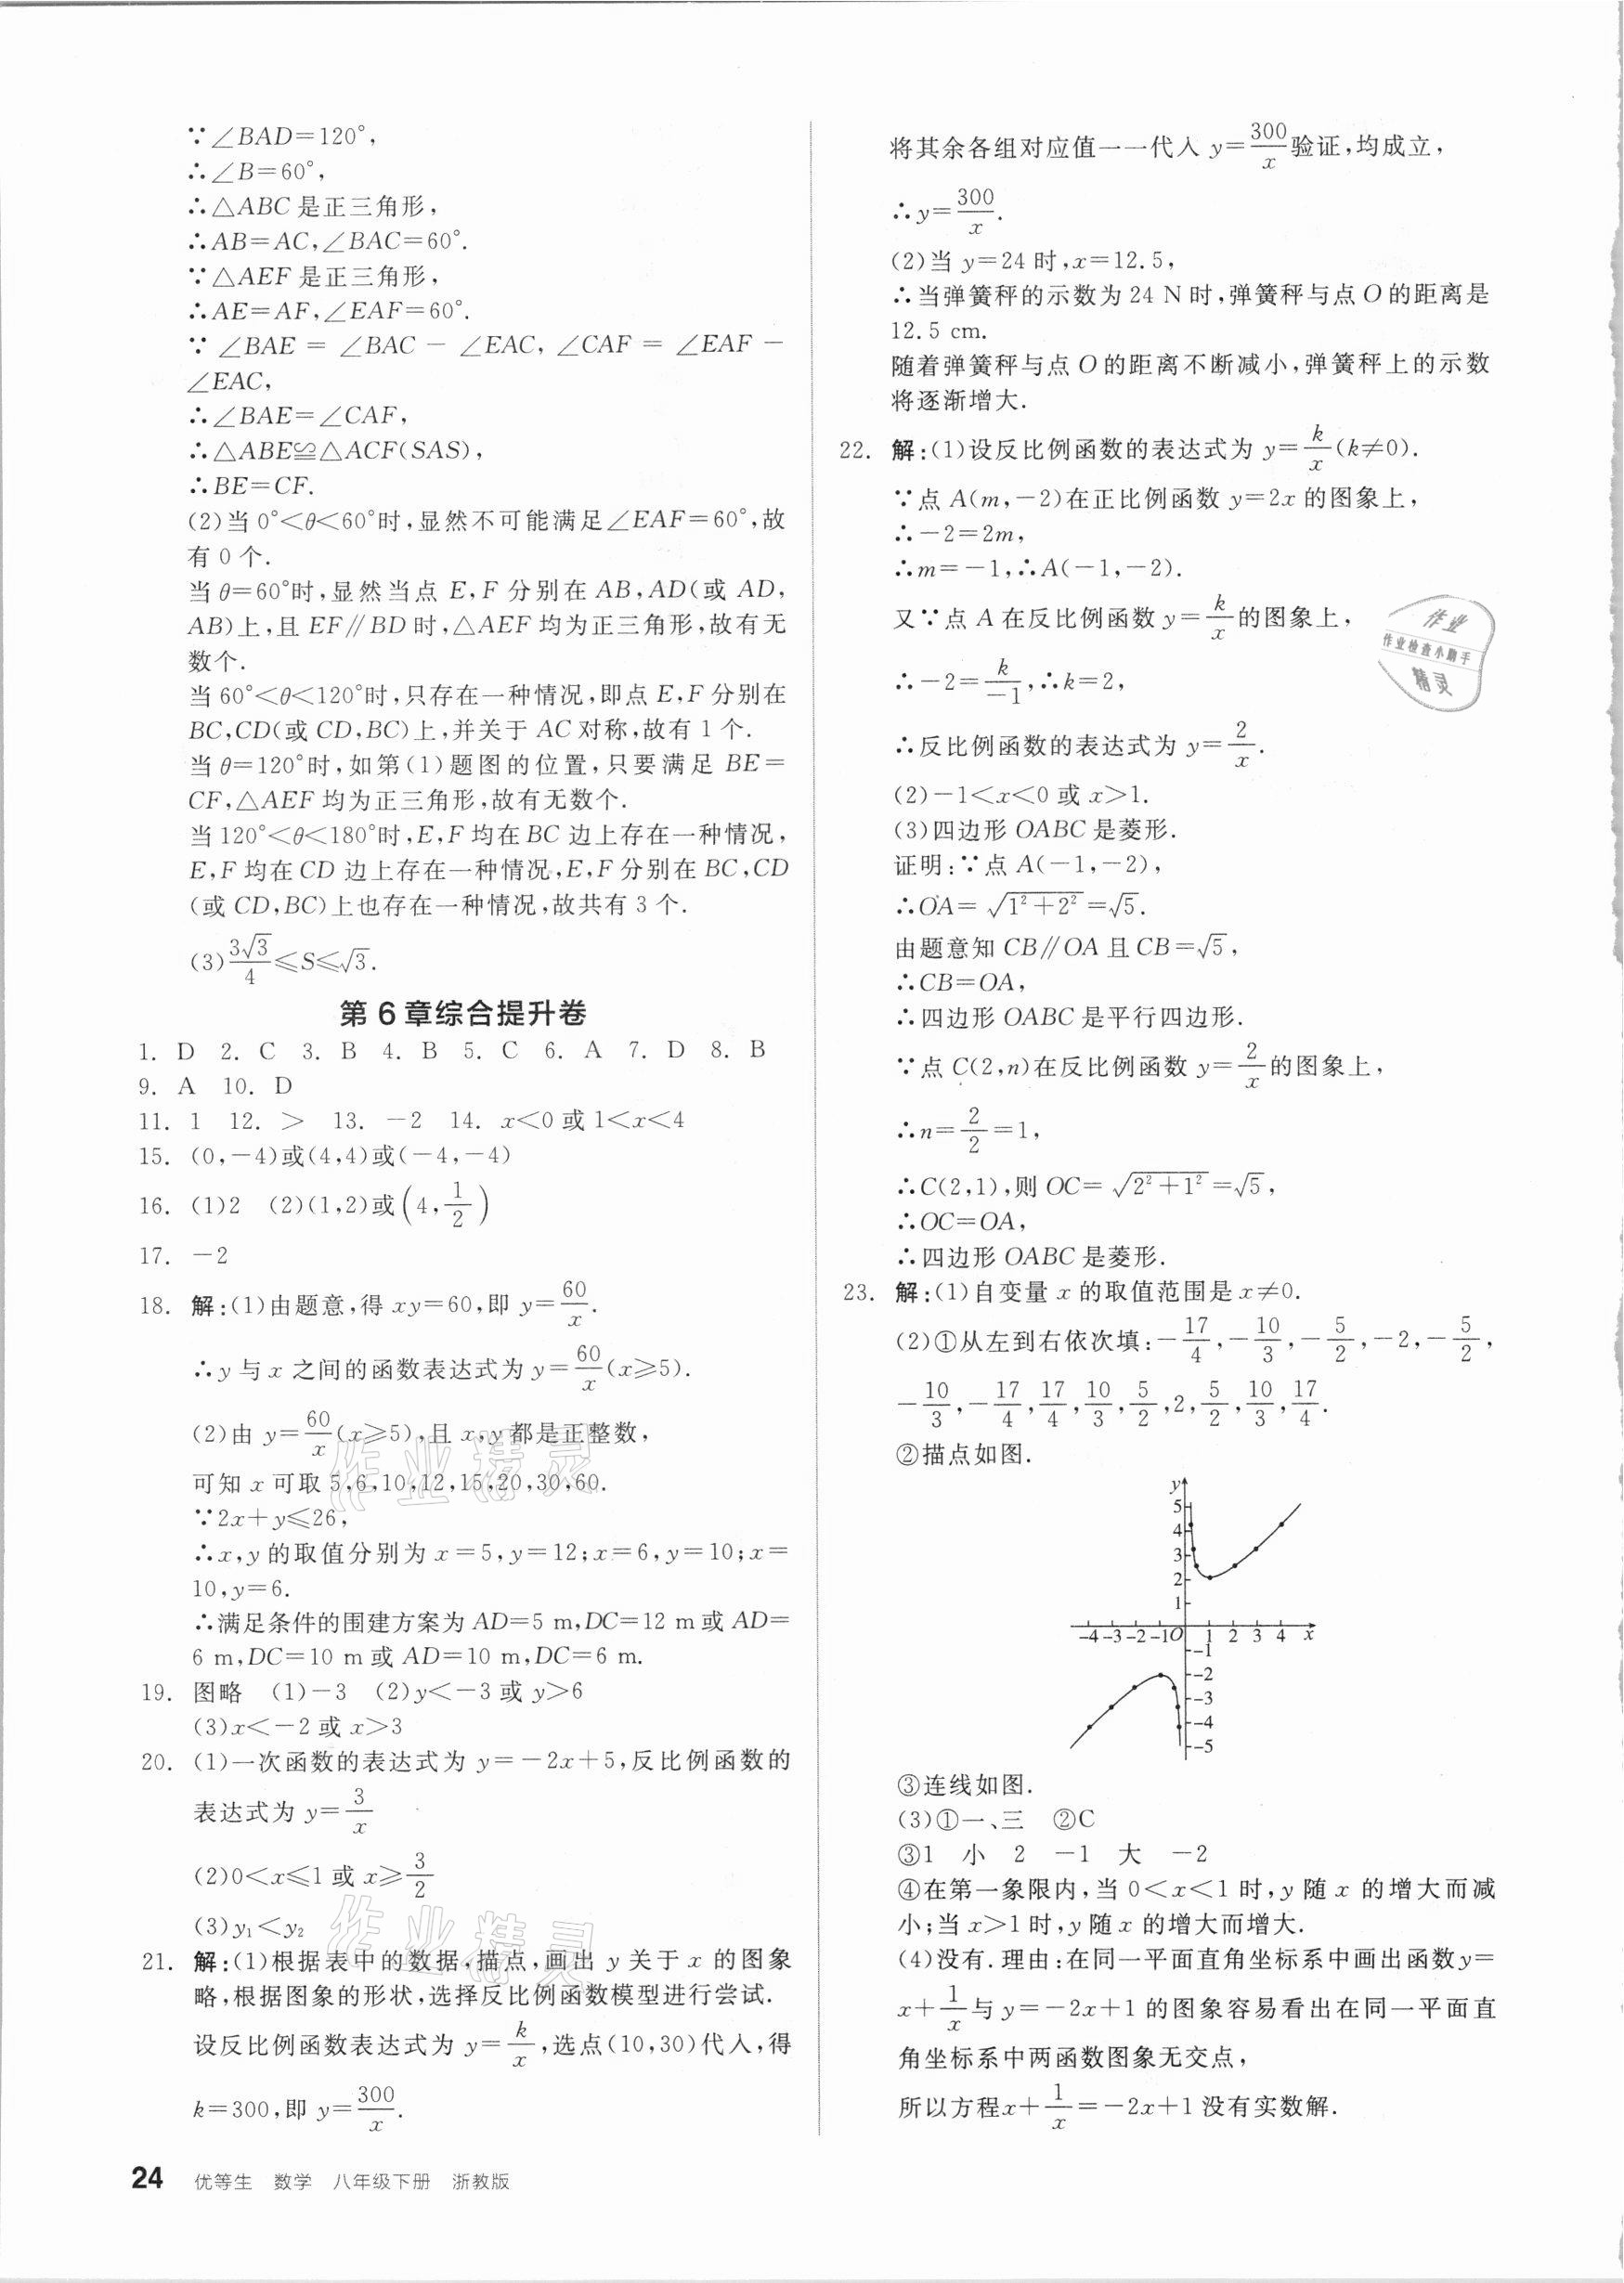 ∵∠BAD=120°,
∴∠B=60°,
∴△ABC 是正三角形,
∴AB=AC,∠BAC=60°.
∵△AEF 是正三角形,
∴AE=AF,∠EAF=60°.
∵ ∠BAE = ∠BAC - ∠EAC, ∠CAF = ∠EAF -
∠EAC,
∴∠BAE=∠CAF,
∴△ABE≌△ACF(SAS),
∴BE=CF.
(2)当 0°<θ<60°时,显然不可能满足∠EAF=60°,故
有 0 个.
当 θ=60°时,显然当点 E,F 分别在 AB,AD(或 AD,
AB)上,且 EF∥BD 时,△AEF 均为正三角形,故有无
数个.
当 60°<θ<120°时,只存在一种情况,即点 E,F 分别在
BC,CD(或 CD,BC)上,并关于 AC 对称,故有 1 个.
当 θ=120°时,如第(1)题图的位置,只要满足 BE=
CF,△AEF 均为正三角形,故有无数个.
当 120°<θ<180°时,E,F 均在 BC 边上存在一种情况,
E,F 均在 CD 边上存在一种情况,E,F 分别在 BC,CD
(或 CD,BC)上也存在一种情况,故共有 3 个.
(3)3√3/4≤S≤√3.
第 6 章综合提升卷
1. D 2. C 3. B 4. B 5. C 6. A 7. D 8. B
9. A 10. D
11. 1 12. > 13. -2 14. x<0 或 1<x<4
15. (0,-4)或(4,4)或(-4,-4)
16. (1)2 (2)(1,2)或(4,1/2)
17. -2
18. 解:(1)由题意,得 xy=60,即 y=60/x.
∴y 与 x 之间的函数表达式为 y=60/x(x≥5).
(2)由 y=60/x(x≥5),且 x,y 都是正整数,
可知 x 可取 5,6,10,12,15,20,30,60.
∵2x+y≤26,
∴x,y 的取值分别为 x=5,y=12;x=6,y=10;x=
10,y=6.
∴满足条件的围建方案为 AD=5 m,DC=12 m 或 AD=
6 m,DC=10 m 或 AD=10 m,DC=6 m.
19. 图略 (1)-3 (2)y<-3 或 y>6
(3)x<-2 或 x>3
20. (1)一次函数的表达式为 y=-2x+5,反比例函数的
表达式为 y=3/x
(2)0<x≤1 或 x≥3/2
(3)y₁<y₂
21. 解:(1)根据表中的数据,描点,画出 y 关于 x 的图象
略,根据图象的形状,选择反比例函数模型进行尝试.
设反比例函数表达式为 y=k/x,选点(10,30)代入,得
k=300,即 y=300/x.
将其余各组对应值一一代入 y=300/x验证,均成立,
∴y=300/x.
(2)当 y=24 时,x=12.5,
∴当弹簧秤的示数为 24 N 时,弹簧秤与点 O 的距离是
12.5 cm.
随着弹簧秤与点 O 的距离不断减小,弹簧秤上的示数
将逐渐增大.
22. 解:(1)设反比例函数的表达式为 y=k/x(k≠0).
∵点 A(m,-2)在正比例函数 y=2x 的图象上,
∴-2=2m,
∴m=-1,∴A(-1,-2).
又∵点 A 在反比例函数 y=k/x的图象上,
∴-2=k/-1,∴k=2,
∴反比例函数的表达式为 y=2/x.
(2)-1<x<0 或 x>1.
(3)四边形 OABC 是菱形.
证明:∵点 A(-1,-2),
∴OA=√(1²+2²)=√5.
由题意知 CB∥OA 且 CB=√5,
∴CB=OA,
∴四边形 OABC 是平行四边形.
∵点 C(2,n)在反比例函数 y=2/x的图象上,
∴n=2/2=1,
∴C(2,1),则 OC=√(2²+1²)=√5,
∴OC=OA,
∴四边形 OABC 是菱形.
23. 解:(1)自变量 x 的取值范围是 x≠0.
(2)①从左到右依次填:-17/4,-10/3,-5/2,-2,-5/2,
-10/3,-17/4,17/4,10/3,5/2,2,5/2,10/3,17/4.
②描点如图.
y
5
4
3
2
1
-4 -3 -2 -1 O 1 2 3 4 x
-1
-2
-3
-4
-5
③连线如图.
(3)①一、三 ②C
③1 小 2 -1 大 -2
④在第一象限内,当 0<x<1 时,y 随 x 的增大而减
小;当 x>1 时,y 随 x 的增大而增大.
(4)没有.理由:在同一平面直角坐标系中画出函数y=
x+1/x与 y=-2x+1 的图象容易看出在同一平面直
角坐标系中两函数图象无交点,
所以方程x+1/x=-2x+1 没有实数解.
24 优等生 数学 八年级下册 浙教版
作业
作业检查小助手
精灵
作业精灵
作业精灵